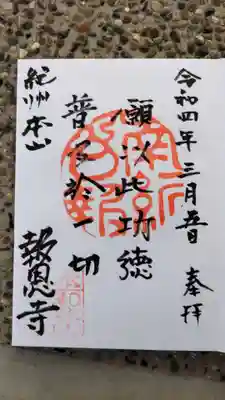 令和四年三月吾日 奉拝
願以此功徳
普及於一切
紀州本山
報恩寺